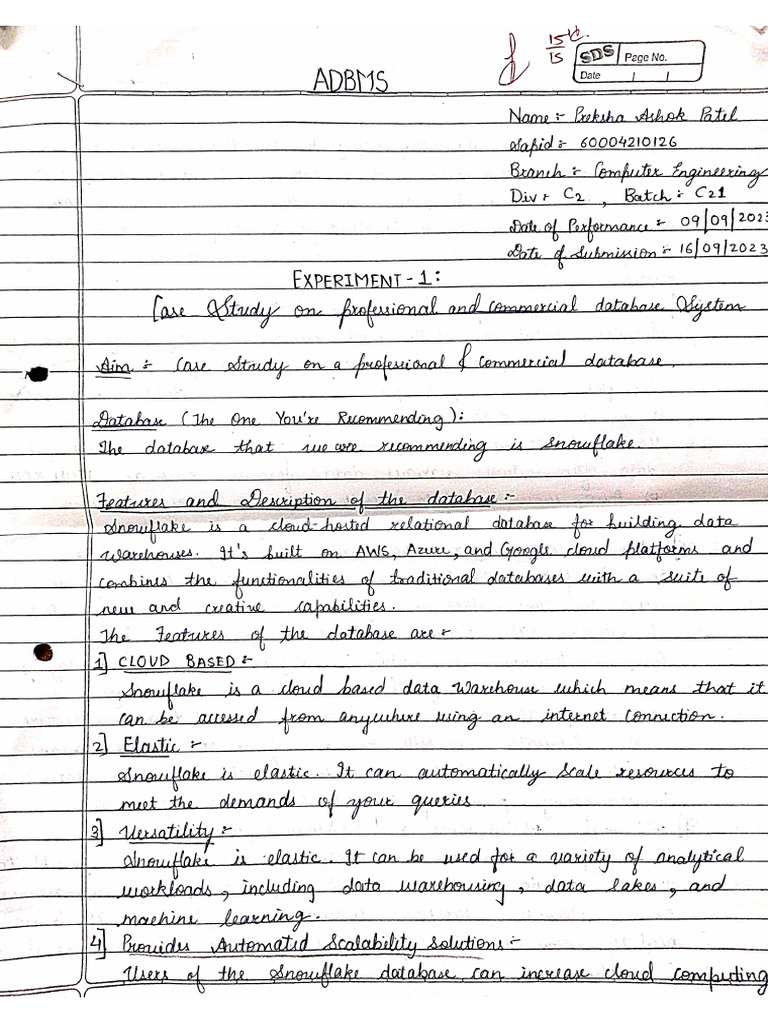 15
15
SDS Page No.
Date
ADBMS
Name :- Preksha Ashok Patel
Sapid :- 60004210126
Branch :- Computer Engineering
Div :- C2 , Batch :- C21
Date of Performance :- 09/09/2023
Date of Submission :- 16/09/2023
EXPERIMENT-1:
Case Study on professional and commercial database System
Aim :- Case Study on a professional & commercial database.
Database (The One You're Recommending):
The database that we are recommending is Snowflake.
Features and Description of the database :-
Snowflake is a cloud-hosted relational database for building data
warehouses. It's built on AWS, Azure, and Google cloud platforms and
combines the functionalities of traditional databases with a suite of
new and creative capabilities.
The Features of the database are :-
1] CLOUD BASED :-
Snowflake is a cloud based data warehouse which means that it
can be accessed from anywhere using an internet connection.
2] Elastic :-
Snowflake is elastic. It can automatically scale resources to
meet the demands of your queries.
3] Versatility :-
Snowflake is elastic. It can be used for a variety of analytical
workloads, including data warehousing, data lakes, and
machine learning.
4] Provides Automated Scalability Solutions :-
Users of the Snowflake database can increase cloud computing